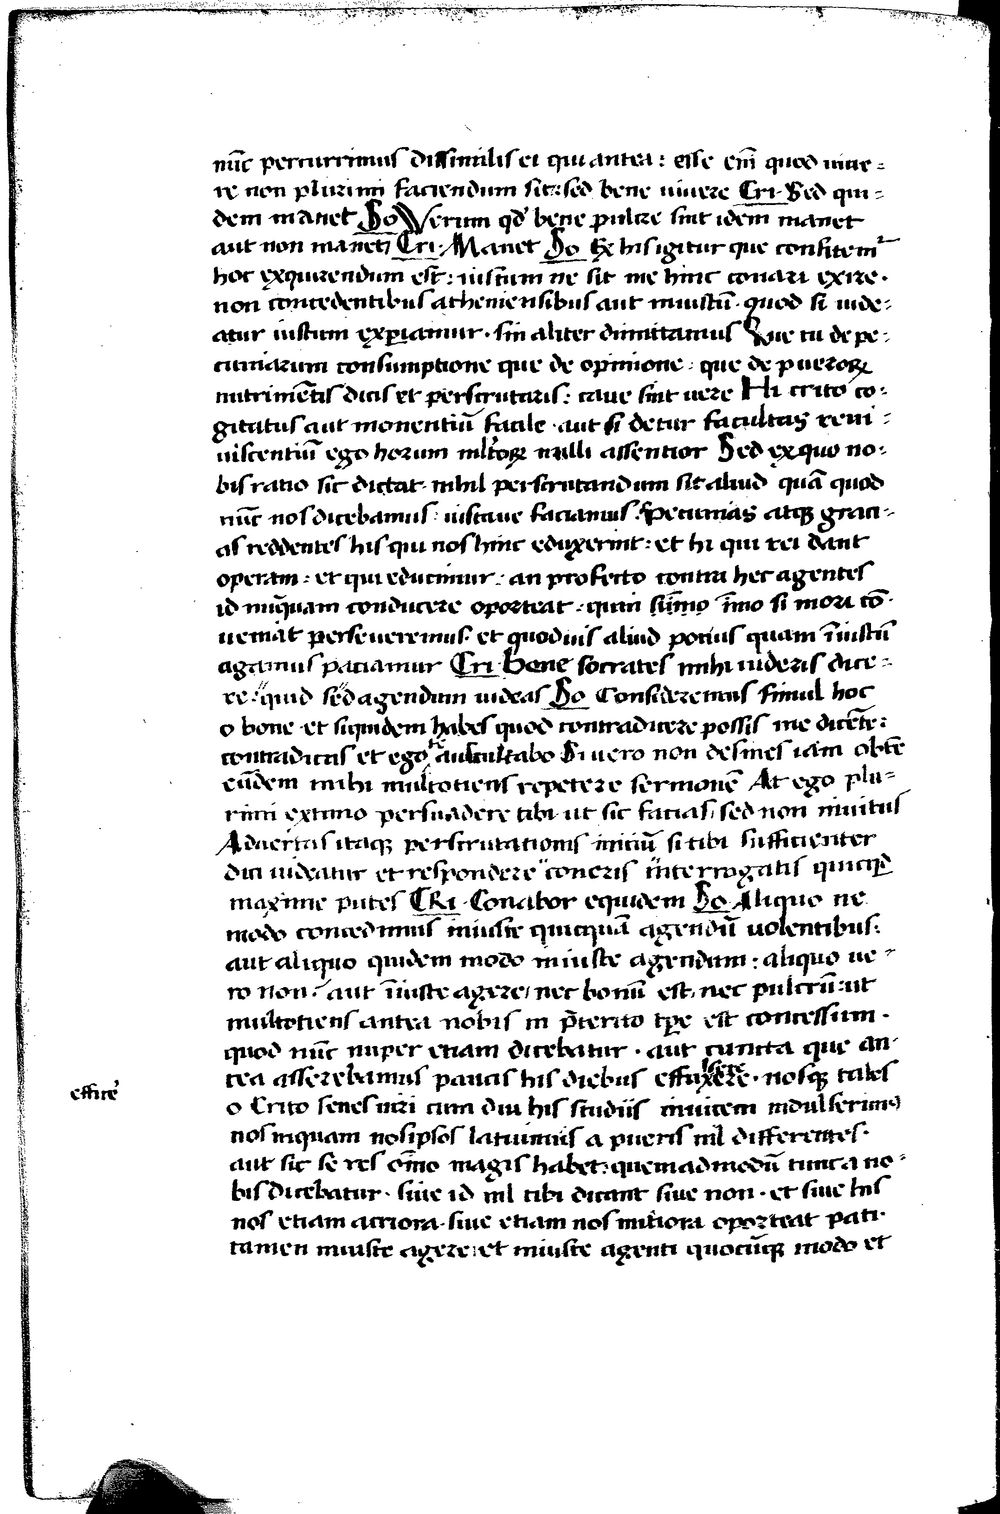 nūc percurrimus dissimilis ei qui antea : esse em̄ quod uiue⸗
re non plurimi faciendum sit : sed bene uiuere Cri · Sed qui⸗
dem manet So Verum qd̄ bene pulcre sint idem manet
aut non manet Cri · Manet So Ex his igitur que confitem²
hoc exquirendum est : iustum ne sit me hinc conari exire ·
non concedentibus atheniensibus aut iniustū · quod si uide⸗
atur iustum experiamur · sin aliter dimittamus Que tu de pe⸗
cuniarum consumptione que de opinione · que de pueroꝝ
nutrimētis dicis et perscrutaris : caue sint uere Hi crito co⸗
gitatus aut monentiū facile · aut si detur facultas reui⸗
uiscentiū ego horum multoꝝ nulli assentior Sed ex quo no⸗
bis ratio sic dictat · nihil perscrutandum sit aliud quā quod
nūc nos dicebamus : iusta ue faciamus · Pecunias atqꝫ graci⸗
as reddentes his qui nos hinc eduxerint : et hi qui rei dant
operam : et qui educimur : an profecto contra hec agentes
id nūquam conducere oporteat : quin sūmo īmo si mori cō⸗
ueniat perseueremus · et quoduis aliud potius quam īiustū
agamus patiamur Cri Bene socrates mihi uideris dice⸗
re : quid sed agendum uideas So Consideremus simul hoc
o bone · et siquidem habes quod contradicere possis me dicēte :
contradicas et ego te auscultabo Si uero non desines iam obtē
eūdem mihi multotiens repetere sermonē At ego plu⸗
rimi extimo persuadere tibi ut sic facias : sed non inuitus
Aduertas itaqꝫ perscrutationis iniciū si tibi sufficienter
dici uideatur et respondere coneris interrogatis quicqd̄
maxime putes CRi · Conabor equidem So Aliquo ne
modo concedimus iniuste quicquā agendū uolentibus :
aut aliquo quidem modo iniuste agendum : aliquo ue⸗
ro non : aut īiuste agere / nec bonū est / nec pulcrū : ut
multotiens antea nobis in p̄terito tpe est concessum ·
quod nūc nuper etiam dicebatur · aut cuncta que an⸗
tea asserebamus paucis his diebus effuxere · nosqꝫ tales
effice²
o Crito senes uiri cum diu his studiis inuicem indulserimꝰ
nos inquam nosipsos latuimus a pueris nil differentes ·
aut sic se res ōino magis habet : quemadmodū tunc a no⸗
bis dicebatur · siue id nil tibi dicant siue non · et siue his
nos etiam acriora · siue etiam nos mitiora oporteat pati ·
tamen iniuste agere : et iniuste agenti quocūqꝫ modo et